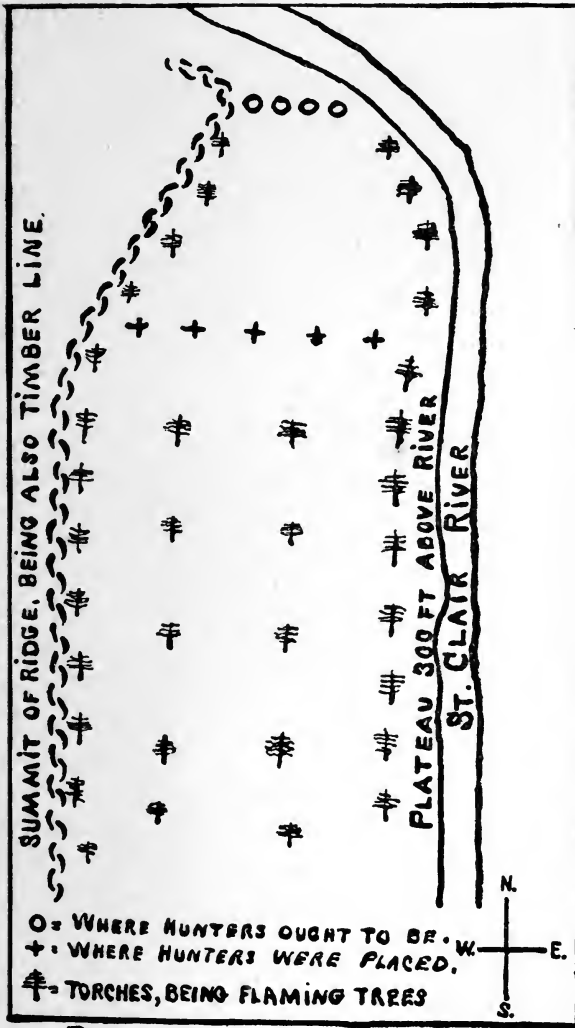 SUMMIT OF RIDGE, BEING ALSO TIMBER LINE.
PLATEAU 300 FT ABOVE RIVER
ST. CLAIR RIVER
N.
W. E.
S.
O = WHERE HUNTERS OUGHT TO BE.
+ = WHERE HUNTERS WERE PLACED.
= TORCHES, BEING FLAMING TREES